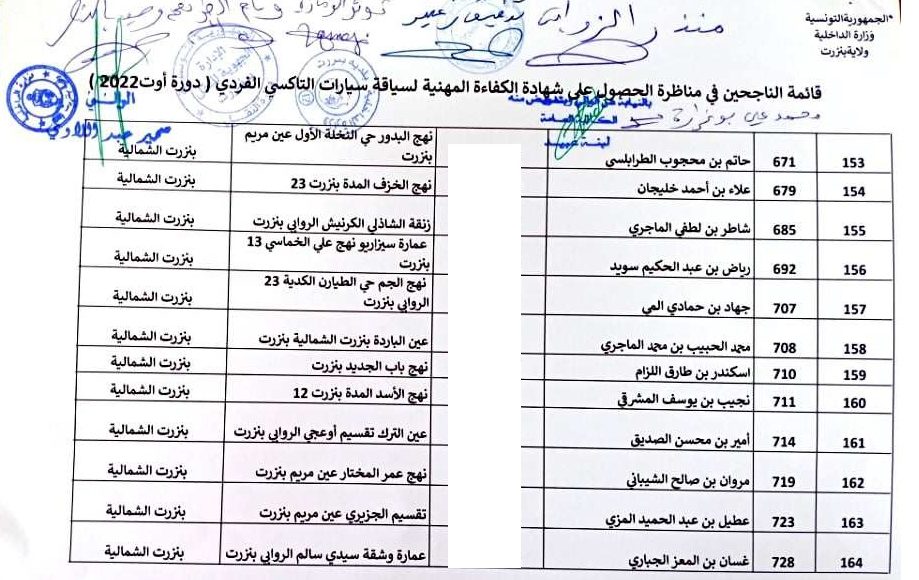 الجمهورية التونسية
وزارة الداخلية
ولاية بنزرت
منذر الزواني
قائمة الناجحين في مناظرة الحصول على شهادة الكفاءة المهنية لسياقة سيارات التاكسي الفردي ( دورة أوت2022 )
الوالي
سمير عبد اللاوي
153 671 حاتم بن محجوب الطرابلسي نهج البدور حي النخلة الأول عين مريم بنزرت بنزرت الشمالية
154 679 علاء بن أحمد خليجان نهج الخزف المدة بنزرت 23 بنزرت الشمالية
155 685 شاطر بن لطفي الماجري زنقة الشاذلي الكرنيش الروابي بنزرت بنزرت الشمالية
156 692 رياض بن عبد الحكيم سويد عمارة سيزاريو نهج علي الخماسي 13 بنزرت بنزرت الشمالية
157 707 جهاد بن حمادي المي نهج الجم حي الطيارن الكدية 23 الروابي بنزرت بنزرت الشمالية
158 708 محمد الحبيب بن محمد الماجري عين الباردة بنزرت الشمالية بنزرت بنزرت الشمالية
159 710 اسكندر بن طارق اللزام نهج باب الجديد بنزرت بنزرت الشمالية
160 711 نجيب بن يوسف المشرقي نهج الأسد المدة بنزرت 12 بنزرت الشمالية
161 714 أمير بن محسن الصديق عين الترك تقسيم أوعجي الروابي بنزرت بنزرت الشمالية
162 719 مروان بن صالح الشيباني نهج عمر المختار عين مريم بنزرت بنزرت الشمالية
163 723 عطيل بن عبد الحميد المزي تقسيم الجزيري عين مريم بنزرت بنزرت الشمالية
164 728 غسان بن المعز الجباري عمارة وشقة سيدي سالم الروابي بنزرت بنزرت الشمالية